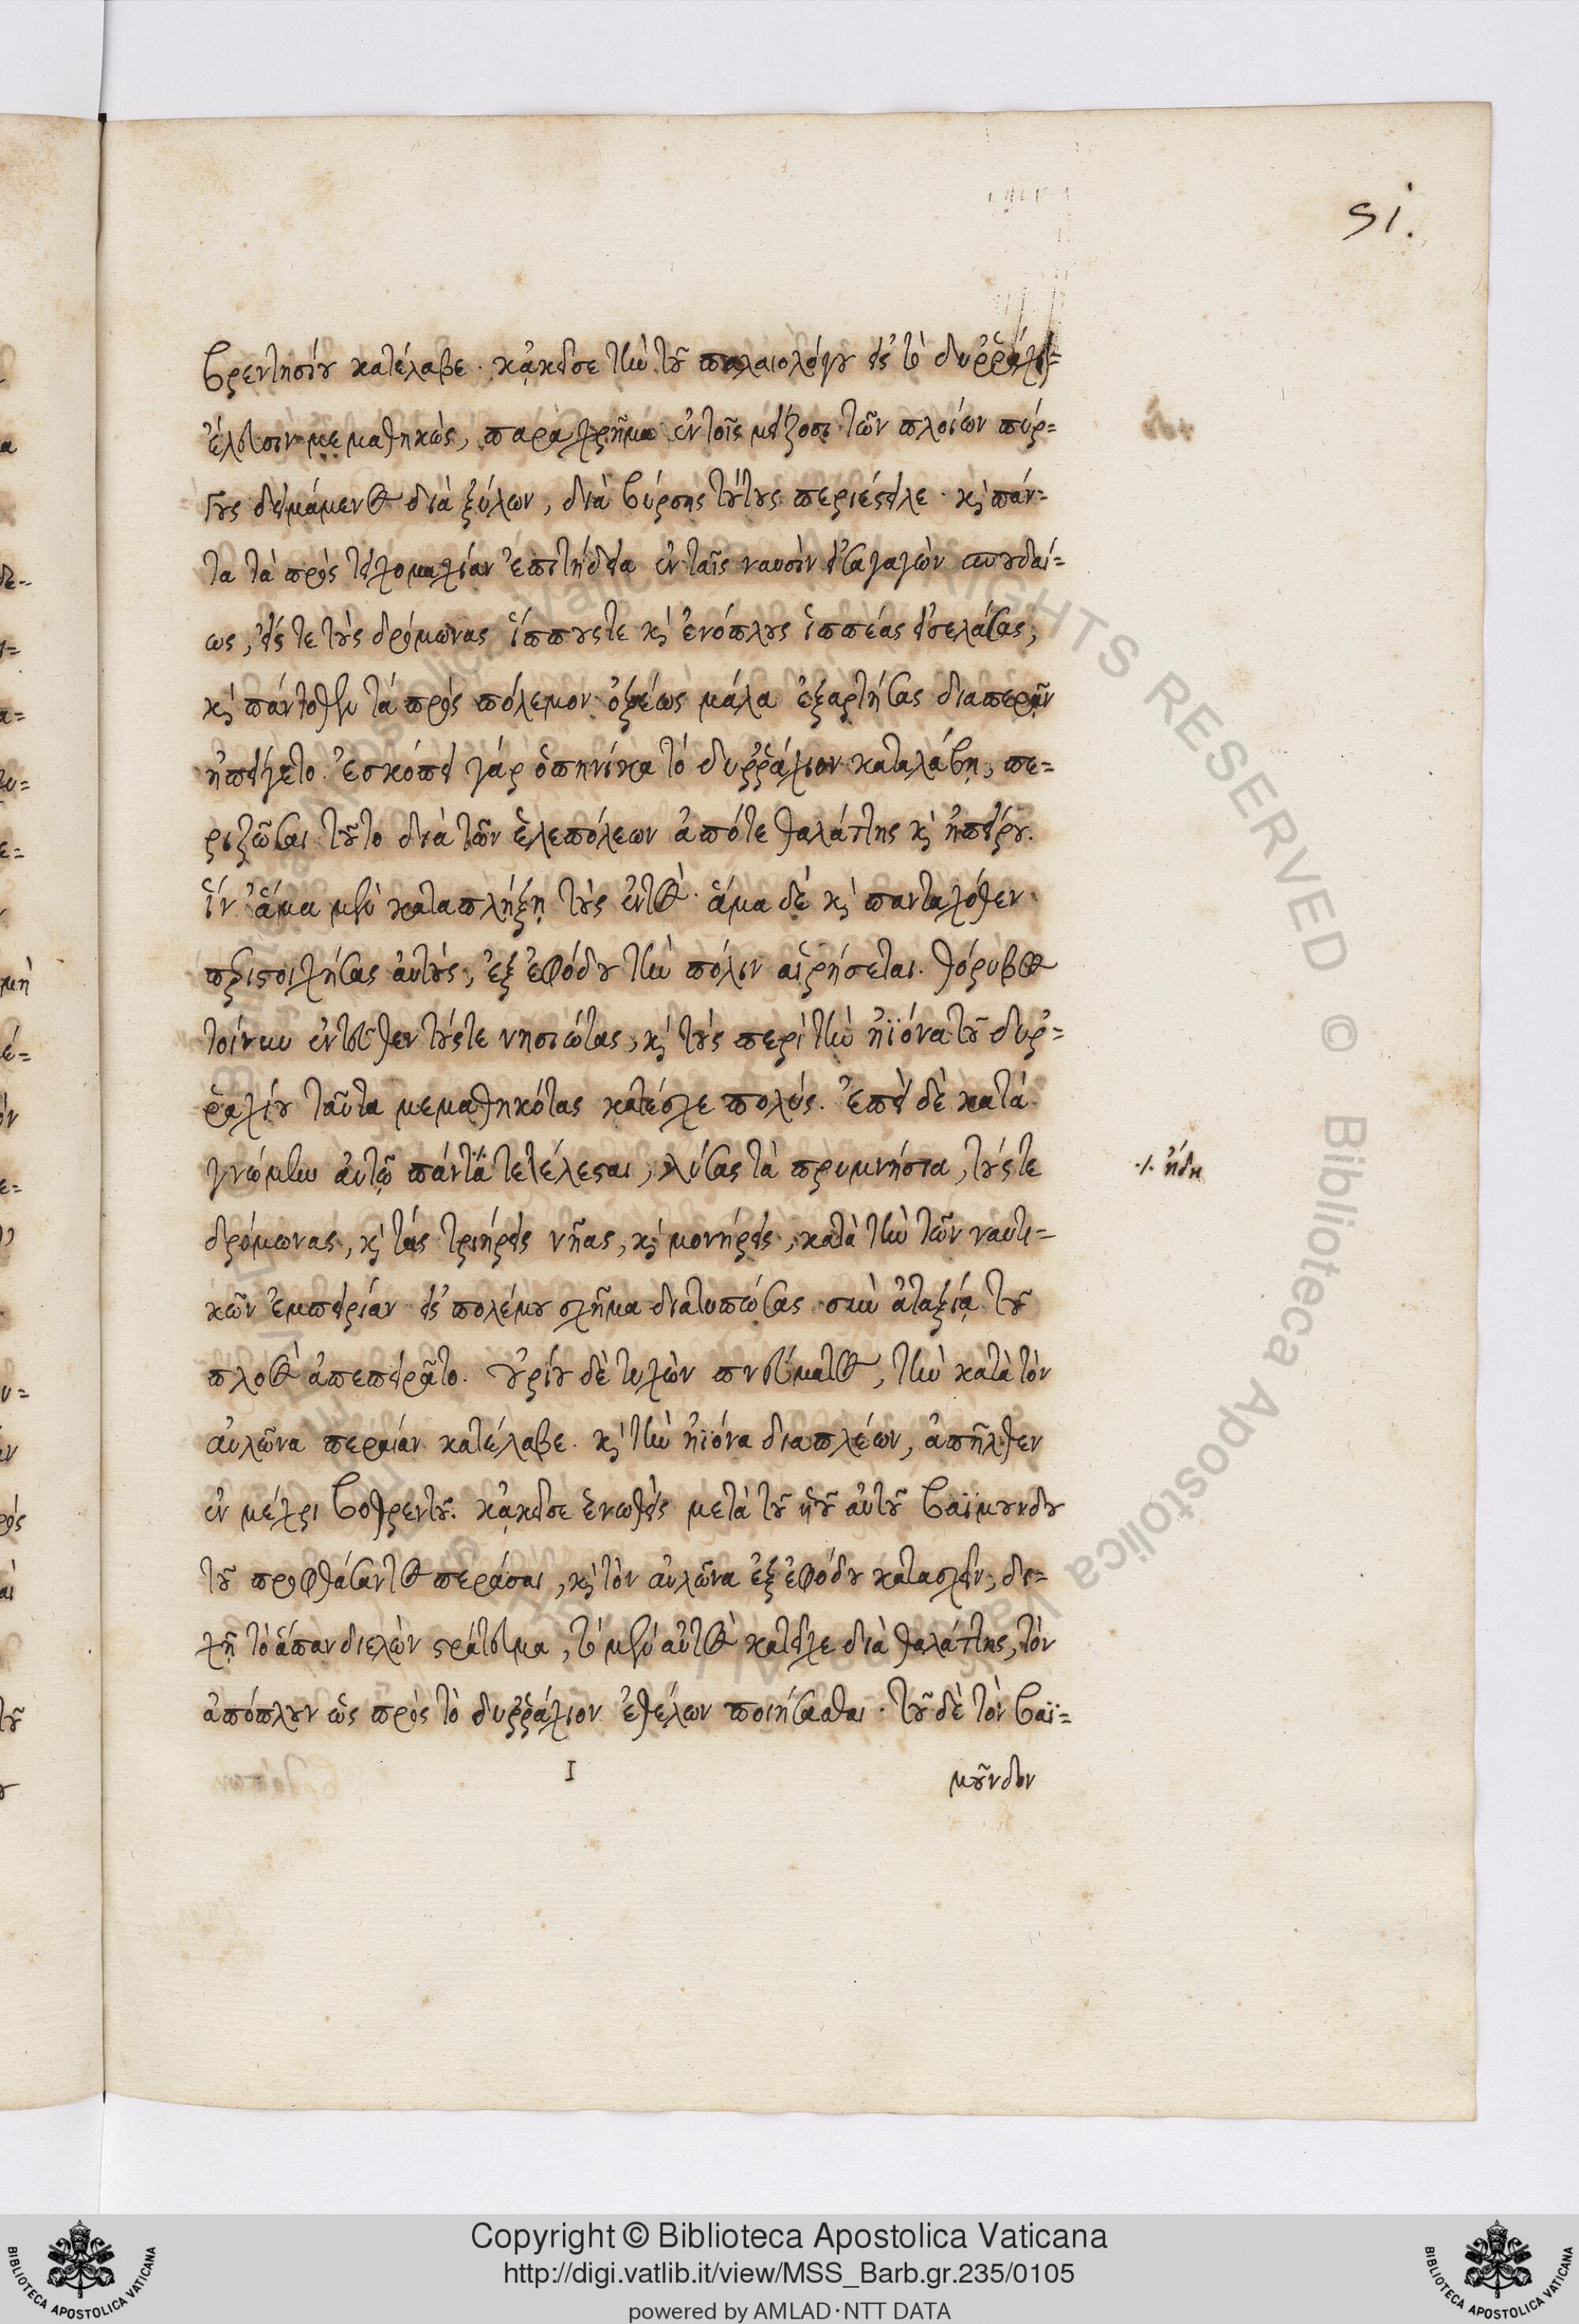 51.
βρεντησίου κατέλαβε. κἀκεῖσε τὴν τοῦ παλαιολόγου εἰς τὸ δυῤῥάχι=
ἔλευσιν μεμαθηκὼς, παραχρῆμα ἐν τοῖς μείζοσι τῶν πλοίων πύρ=
γους δειμάμενος διὰ ξύλων, διὰ βύρσης τούτους περιέστειλε. καὶ πάν=
τα τὰ πρὸς τειχομαχίαν ἐπιτήδεια ἐν ταῖς ναυσὶν εἰσαγαγὼν σπουδαί=
ως, εἴς τε τοὺς δρόμωνας ἵππους τε καὶ ἐνόπλους ἱππέας εἰσελάσας,
καὶ πάντοθεν τὰ πρὸς πόλεμον ὀξέως μάλα ἐξαρτήσας διαπερᾶν
ἠπείγετο. ἐσκόπει γάρ ὁπηνίκα τὸ δυῤῥάχιον καταλάβῃ, πε=
ριζῶσαι τοῦτο διὰ τῶν ἑλεπόλεων ἀπό τε θαλάττης καὶ ἠπείρου.
ἵν' ἅμα μὲν καταπλήξῃ τοὺς ἐντὸς. ἅμα δὲ καὶ πανταχόθεν
περιστοιχήσας αὐτοὺς, ἐξ ἐφόδου τὴν πόλιν αἱρήσεται. θόρυβος
τοίνυν ἐντεῦθεν τούς τε νησιώτας, καὶ τοὺς περὶ τὴν ἠϊόνα τοῦ δυῤ=
ῥαχίου ταῦτα μεμαθηκότας κατέσχε πολύς. ἐπεὶ δὲ κατὰ
γνώμην αὐτῷ πάντα τετέλεσται, λύσας τὰ πρυμνήσια, τούς τε
·/. ἤδη
δρόμωνας, καὶ τὰς τριήρεις νῆας, καὶ μονήρεις, κατὰ τὴν τῶν ναυτι=
κῶν ἐμπειρίαν εἰς πολέμου σχῆμα διατυπώσας σὺν ἀταξίᾳ τοῦ
πλοὸς ἀπεπειρᾶτο. οὐρίου δὲ τυχὼν πνεύματος, τὴν κατὰ τὸν
αὐλῶνα περαίαν κατέλαβε. καὶ τὴν ἠϊόνα διαπλέων, ἀπῆλθεν
ἐν μέχρι βοθρεντοῦ. κἀκεῖσε ἑνωθεὶς μετὰ τοῦ υἱοῦ αὐτοῦ βαϊμούνδου
τοῦ προφθάσαντος περάσαι, καὶ τὸν αὐλῶνα ἐξ ἐφόδου κατασχεῖν, δι=
χῇ τὸ ἅπαν διελὼν στράτευμα, τὸ μὲν αὐτὸς κατεῖχε διὰ θαλάττης, τὸν
ἀπόπλουν ὡς πρὸς τὸ δυῤῥάχιον ἐθέλων ποιήσασθαι. τοῦ δὲ τὸν βαϊ=
I
μοῦνδον
Copyright © Biblioteca Apostolica Vaticana
http://digi.vatlib.it/view/MSS_Barb.gr.235/0105
powered by AMLAD·NTT DATA